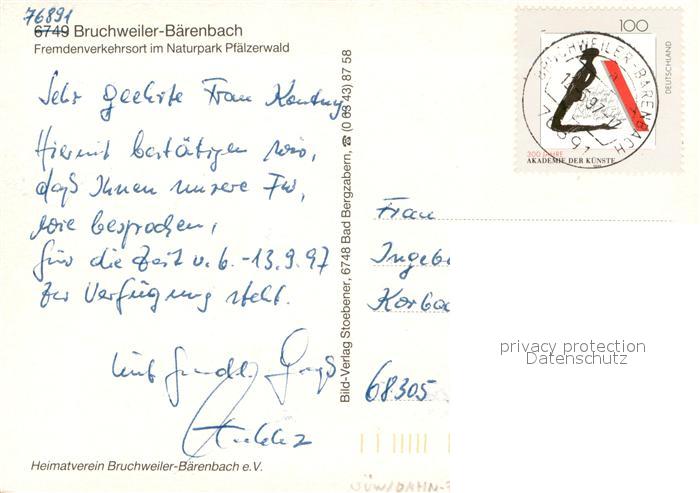 76891
6749 Bruchweiler-Bärenbach
Fremdenverkehrsort im Naturpark Pfälzerwald
Sehr geehrte Frau
Hiermit bestätigen wir,
daß Ihnen unsere Fw,
wie besprochen,
für die Zeit v. 6.-13.9.97
zur Verfügung steht.
Mit freundl. Gruß
Heimatverein Bruchweiler-Bärenbach e.V.
Bild-Verlag Stoebener, 6748 Bad Bergzabern, ☎ (0 63 43) 87 58
100
DEUTSCHLAND
200 JAHRE
AKADEMIE DER KÜNSTE
BRUCHWEILER-BÄRENBACH
76891
Frau
Ingeb
Korbac
68305
privacy protection
Datenschutz
SÜW/DAHN-